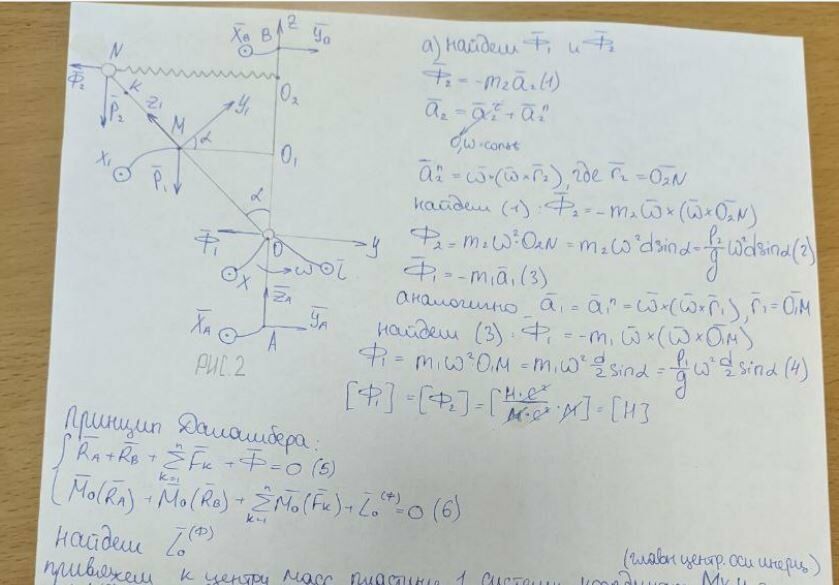 Z
X̄_B B Ȳ_B
N
Φ̄₂ K
P̄₂ Z̄₁ Y₁ O₂
M α
X₁ P̄₁ O₁
α
Φ̄₁ O Y
X ω L̄
Z̄_A
X̄_A A Ȳ_A
РИС. 2
а) найдем Φ̄₁ и Φ̄₂
Φ̄₂ = -m₂ā₂ (1)
ā₂ = ā₂^τ + ā₂ⁿ
0, ω-const
ā₂ⁿ = ω̄×(ω̄×r̄₂), где r̄₂ = O̅₂N̅
найдем (1): Φ̄₂ = -m₂ω̄×(ω̄×O̅₂N̅)
Φ₂ = m₂ω²·O₂N = m₂ω²dsinα = P₂/g ω²dsinα (2)
Φ̄₁ = -m₁ā₁ (3)
аналогично ā₁ = ā₁ⁿ = ω̄×(ω̄×r̄₁), r̄₁ = O̅₁M̅
найдем (3): Φ̄₁ = -m₁ω̄×(ω̄×O̅₁M̅)
Φ₁ = m₁ω²O₁M = m₁ω² d/2 sinα = P₁/g ω² d/2 sinα (4)
[Φ₁] = [Φ₂] = [Н·с²/м·с² · м] = [Н]
Принцип Даламбера:
{ R̄_A + R̄_B + Σ_{k=1}^{n} F̄_k + Φ̄ = 0 (5)
M̄₀(R̄_A) + M̄₀(R̄_B) + Σ_{k=1}^{n} M̄₀(F̄_k) + L̄₀^(Φ) = 0 (6)
найдем L̄₀^(Φ)
(главн центр. оси инерц)
привяжем к центру масс пластины 1 систему координат